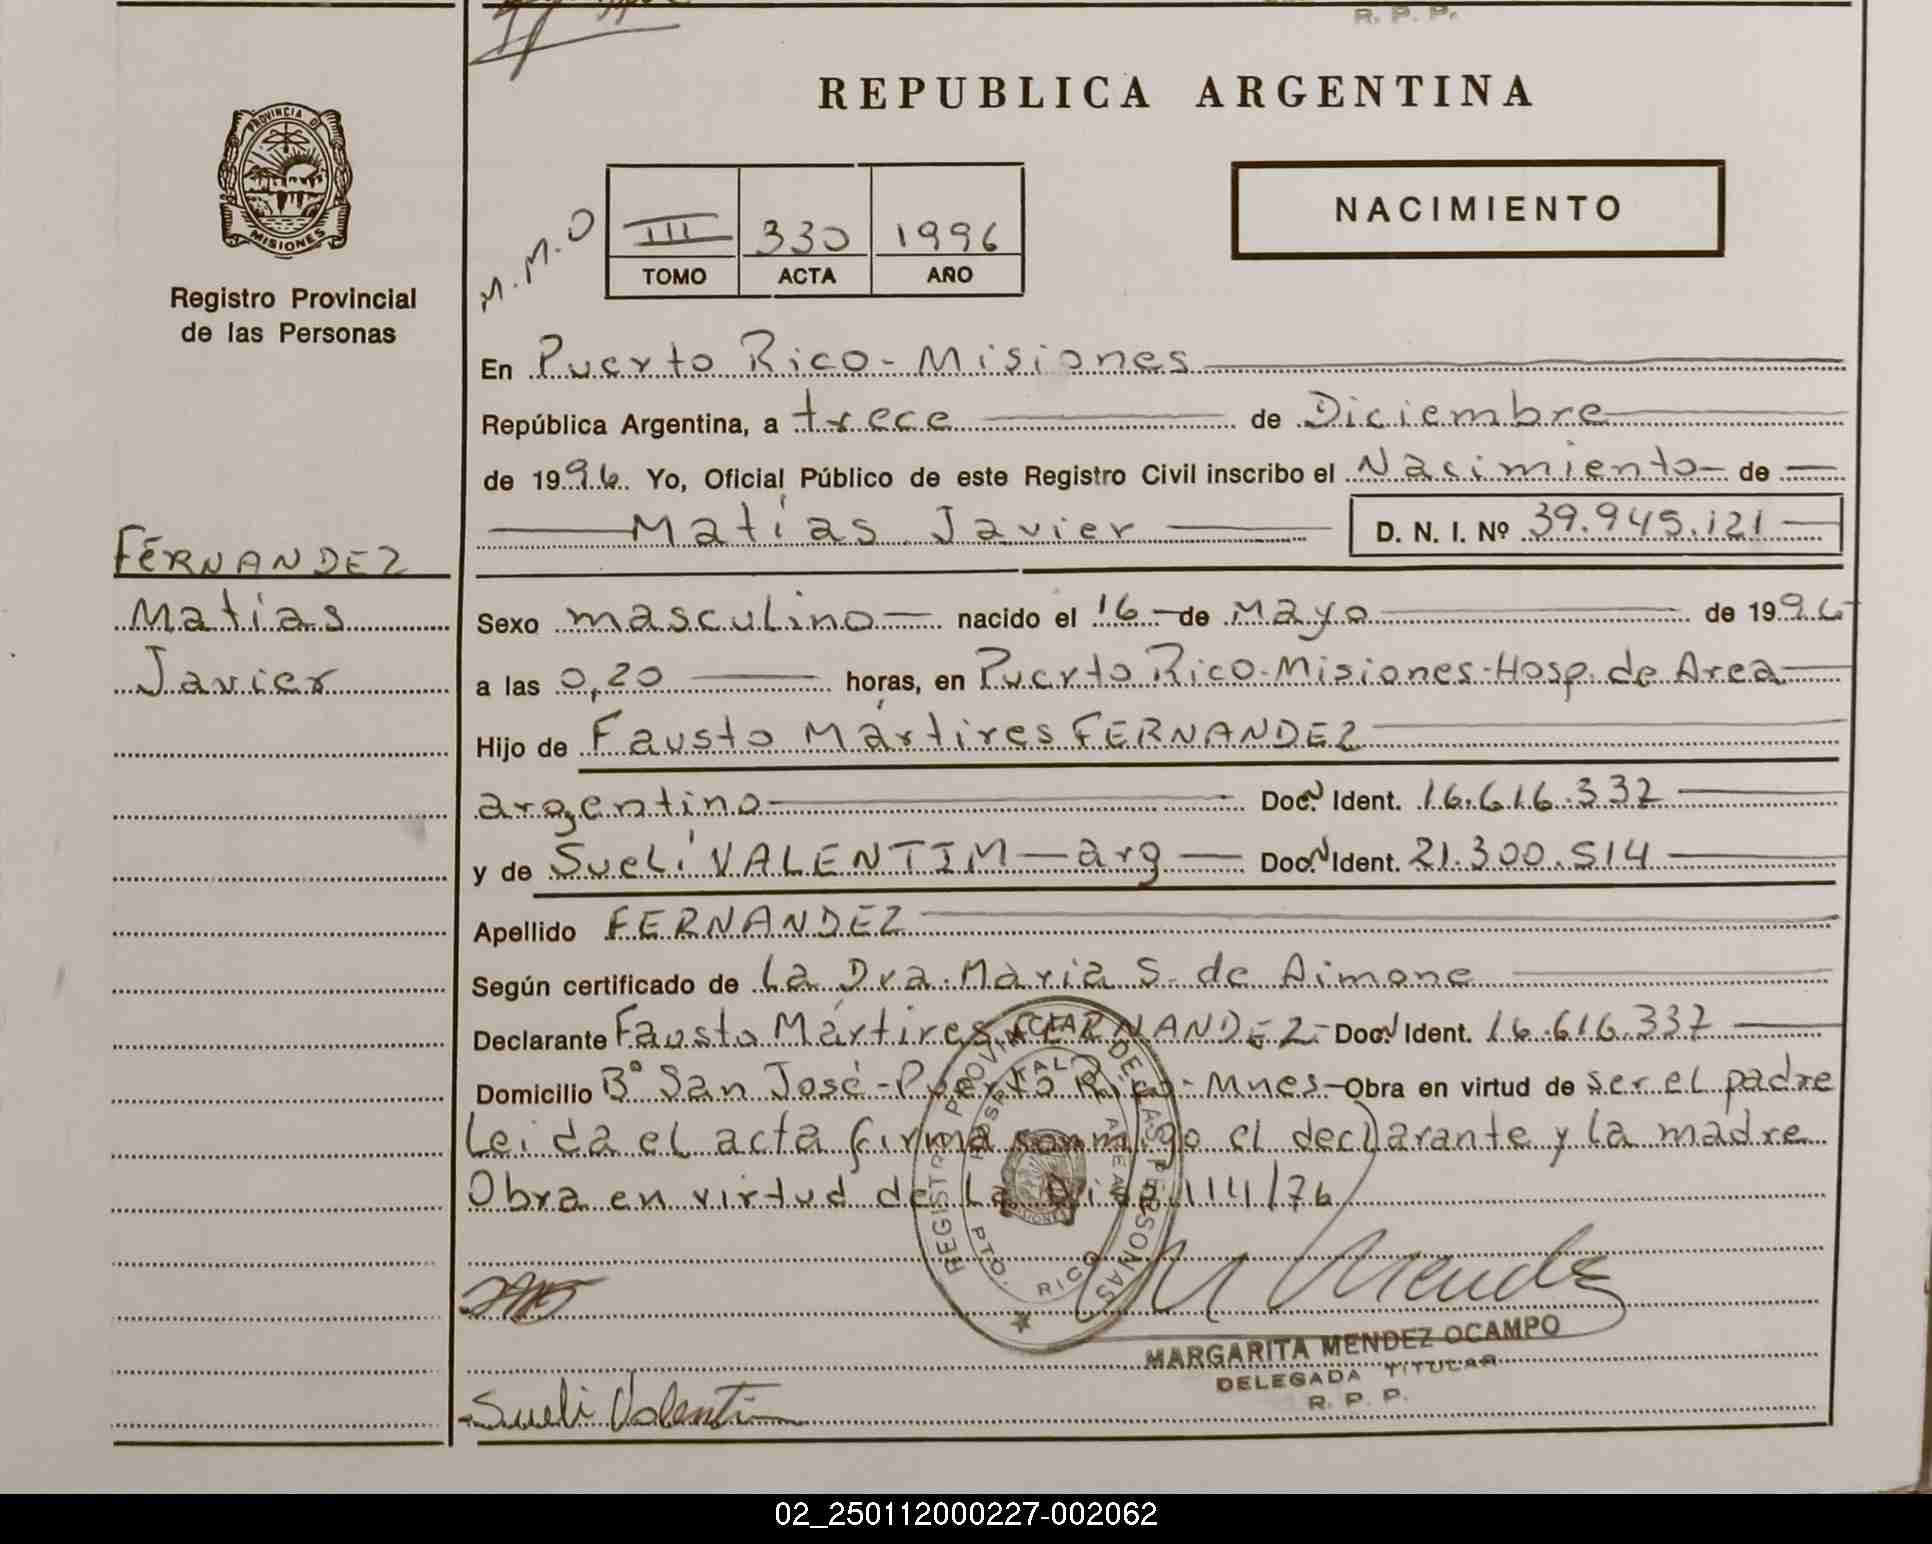 R. P. P.
REPUBLICA ARGENTINA
PROVINCIA DE
MISIONES
Registro Provincial
de las Personas
M.M.O
III 330 1996
TOMO ACTA AÑO
NACIMIENTO
En Puerto Rico - Misiones
República Argentina, a trece de Diciembre
de 1996. Yo, Oficial Público de este Registro Civil inscribo el Nacimiento de
Matías Javier D. N. I. Nº 39.945.121
FERNANDEZ
Matías
Javier
Sexo masculino nacido el 16 de Mayo de 1996
a las 0,20 horas, en Puerto Rico-Misiones-Hosp. de Area
Hijo de Fausto Mártires FERNANDEZ
argentino Doc. Ident. 16.616.337
y de Suelí VALENTIM - arg Doc. Ident. 21.300.514
Apellido FERNANDEZ
Según certificado de La Dra. María S. de Aimone
Declarante Fausto Mártires FERNANDEZ - Doc. Ident. 16.616.337
Domicilio Bº San José - Puerto Rico - Mnes - Obra en virtud de ser el padre
Leida el acta firma conmigo el declarante y la madre
Obra en virtud de La Disp. 114/76
REGISTRO PROVINCIAL DE LAS PERSONAS
HOSPITAL DE AREA
PTO. RICO
M Mendez
MARGARITA MENDEZ OCAMPO
DELEGADA TITULAR
R. P. P.
Sueli Valentim
02_250112000227-002062